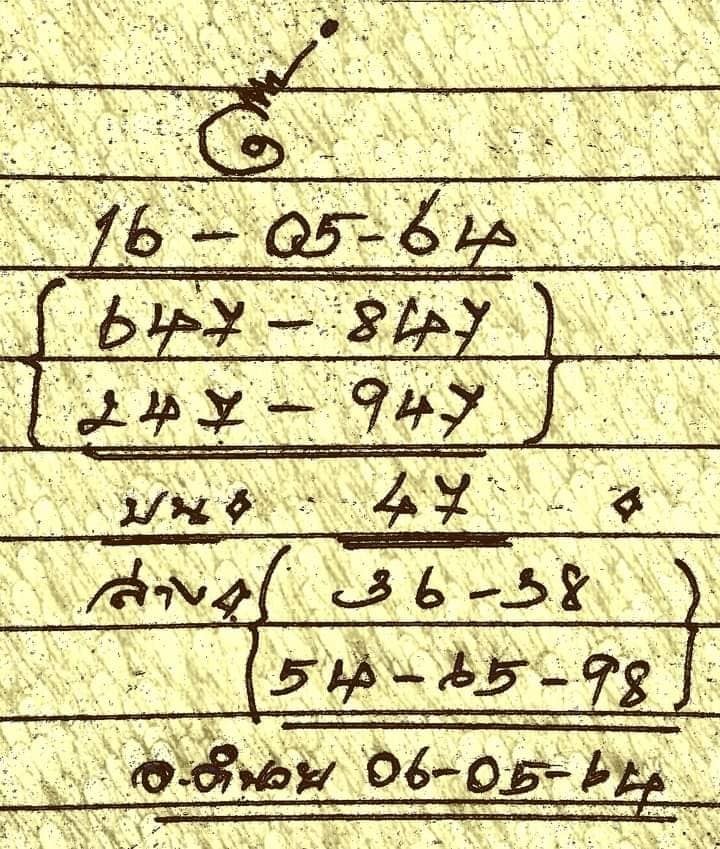 16-05-64
647-847
247-947
บน 47
ล่าง 36-38
54-65-98
06-05-64